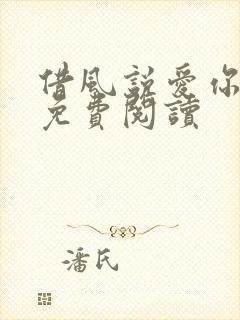 借風説愛你
免費閱讀
潘氏